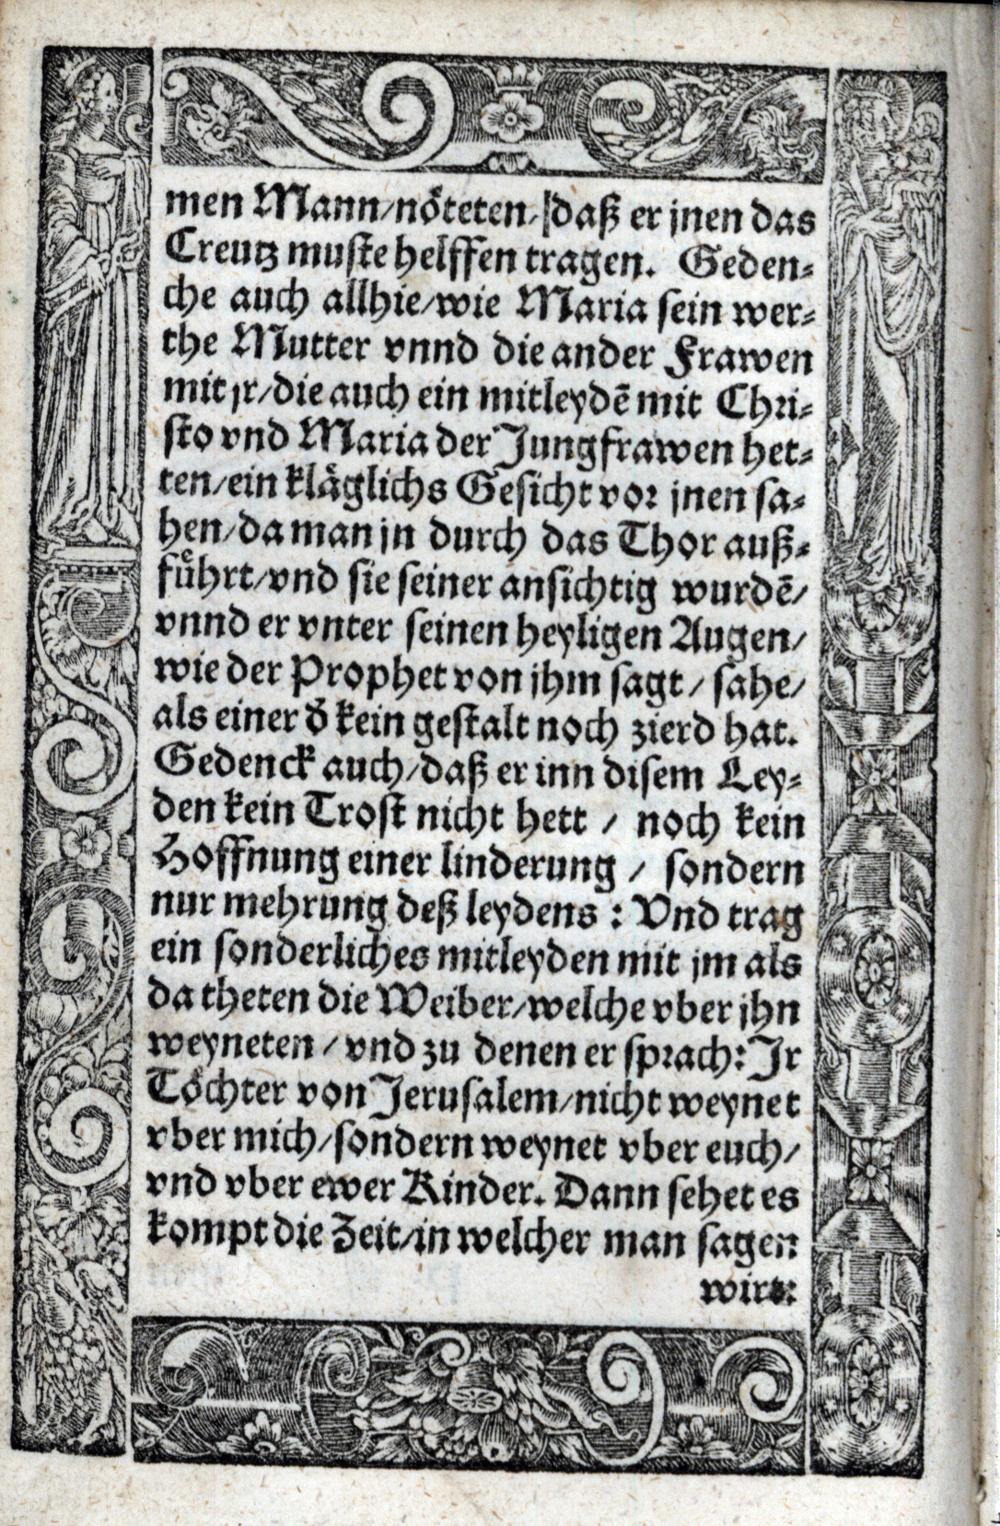 men Mann/nöteten/daß er jnen das
Creutz muste helffen tragen. Geden⸗
che auch allhie/wie Maria sein wer⸗
the Mutter vnnd die ander Frawen
mit jr/die auch ein mitleydẽ mit Chri⸗
sto vnd Maria der Jungfrawen het⸗
ten/ein kläglichs Gesicht vor jnen sa⸗
hen/da man jn durch das Thor auß⸗
führt/vnd sie seiner ansichtig wurdẽ/
vnnd er vnter seinen heyligen Augen/
wie der Prophet von jhm sagt/sahe/
als einer d̃ kein gestalt noch zierd hat.
Gedenck auch/daß er inn disem Ley⸗
den kein Trost nicht hett / noch kein
Hoffnung einer linderung / sondern
nur mehrung deß leydens : Vnd trag
ein sonderliches mitleyden mit jm als
da theten die Weiber/welche vber jhn
weyneten / vnd zu denen er sprach: Jr
Töchter von Jerusalem/nicht weynet
vber mich/sondern weynet vber euch/
vnd vber ewer Kinder. Dann sehet es
kompt die Zeit/in welcher man sagen
wirt: